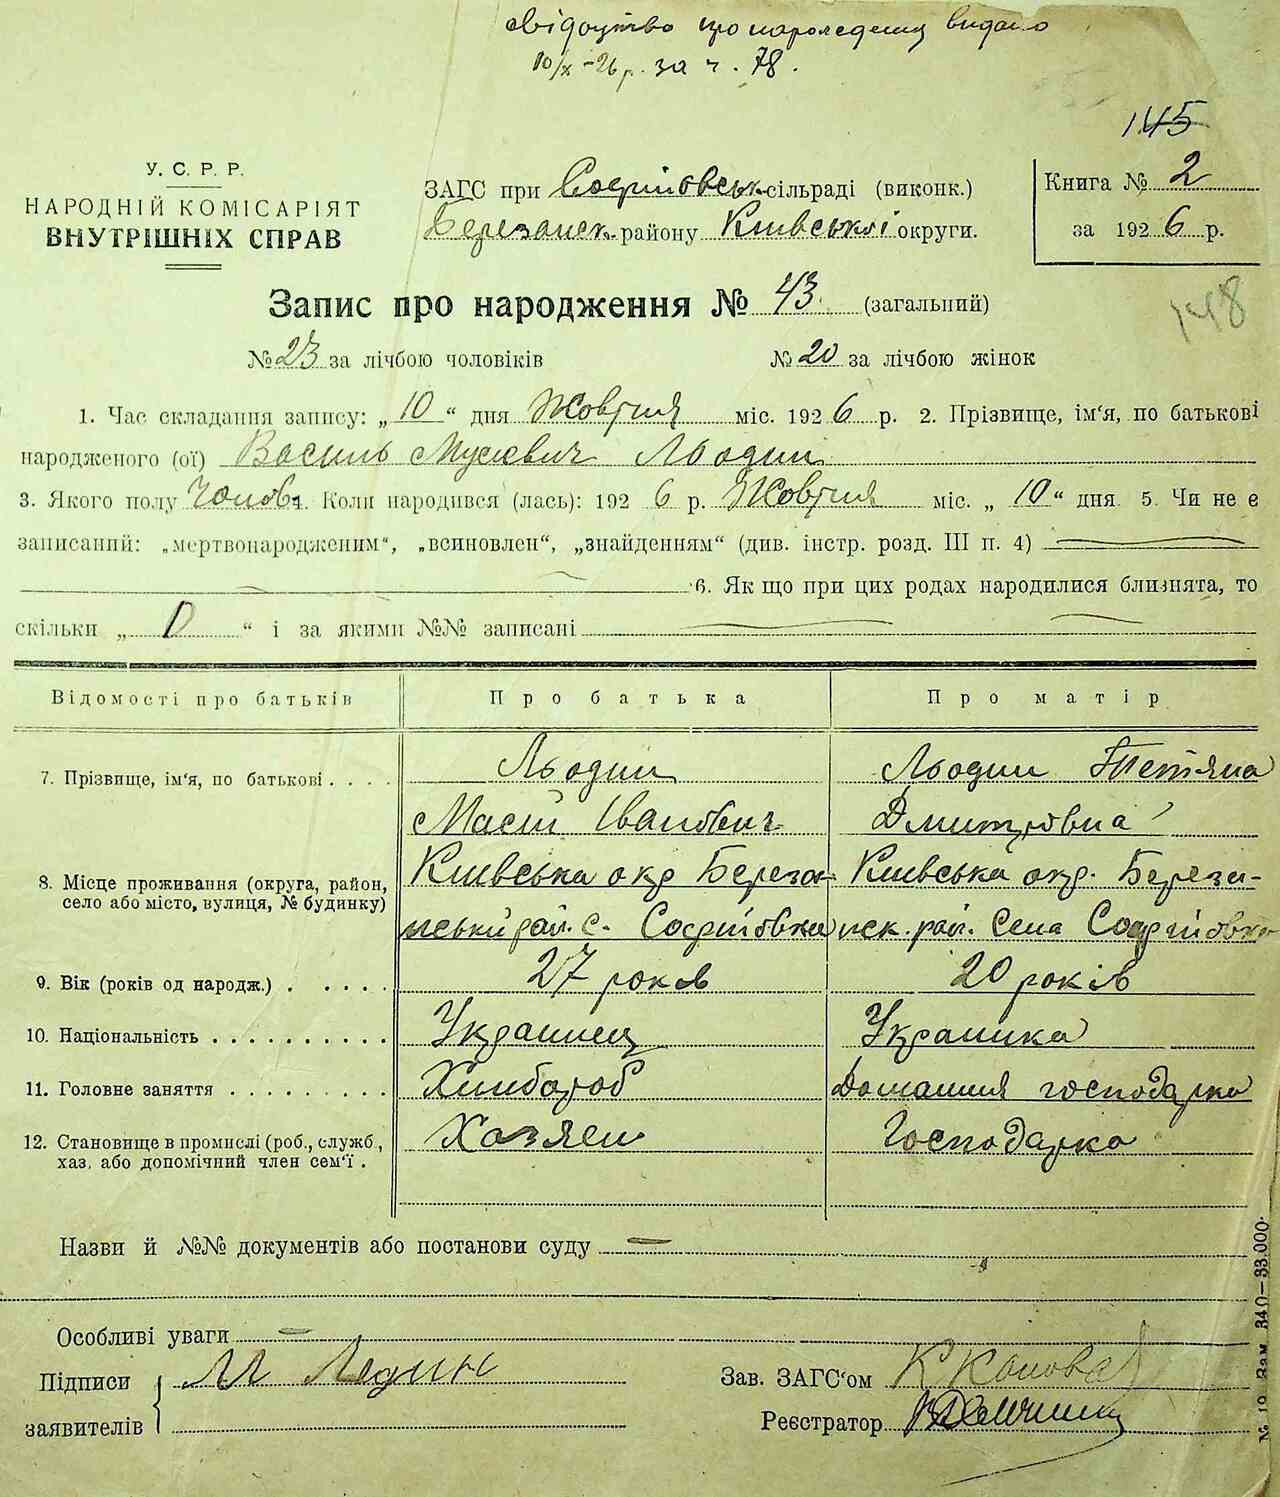 свідоцтво про народження видано
10/X -26 р. за ч. 78.
145
У. С. Р. Р.
НАРОДНІЙ КОМІСАРІЯТ
ВНУТРІШНІХ СПРАВ
ЗАГС при Софіївськ сільраді (виконк.)
Березанськ. району Київської округи.
Книга № 2
за 1926 р.
Запис про народження № 43. (загальний)
148
№ 23 за лічбою чоловіків № 20 за лічбою жінок
1. Час складання запису: „10“ дня Жовтня міс. 1926 р. 2. Прізвище, ім‘я, по батькові
народженого (ої) Василь Мусієвич Льодин
3. Якого полу Чолов. 4. Коли народився (лась): 1926 р. Жовтня міс. „10“ дня. 5. Чи не є
записаний: „мертвонародженим“, „всиновлен“, „знайденням“ (див. інстр. розд. III п. 4)
6. Як що при цих родах народилися близнята, то
скільки „0“ і за якими №№ записані
Відомості про батьків Про батька Про матір
7. Прізвище, ім‘я, по батькові . . . . Льодин Льодин Тетяна
Іванович Дмитрівна
8. Місце проживання (округа, район, Київська окр Береза- Київська окр. Береза-
село або місто, вулиця, № будинку) нський рай. с. Софіївка нск. рай. Села Софіївка
9. Вік (років од народж.) . . . . . 27 років 20 років
10. Національність . . . . . . . . . . Українец Українка
11. Головне заняття . . . . . . . . . Хлібороб Домашня господарка
12. Становище в промислі (роб., служб., Хазяен Господарка
хаз. або допомічний член сем‘ї .
Назви й №№ документів або постанови суду —
Особливі уваги —
Підписи М Ледин
заявителів
Зав. ЗАГС‘ом
Реєстратор
№ 19 Зам. 340—33.000.